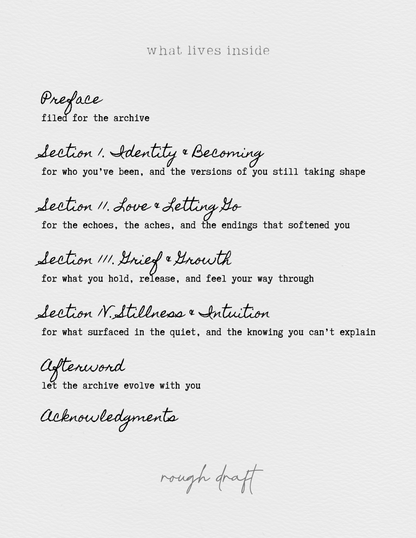 what lives inside
Preface
filed for the archive
Section I. Identity & Becoming
for who you've been, and the versions of you still taking shape
Section II. Love & Letting Go
for the echoes, the aches, and the endings that softened you
Section III. Grief & Growth
for what you hold, release, and feel your way through
Section IV. Stillness & Intuition
for what surfaced in the quiet, and the knowing you can't explain
Afterword
let the archive evolve with you
Acknowledgments
rough draft